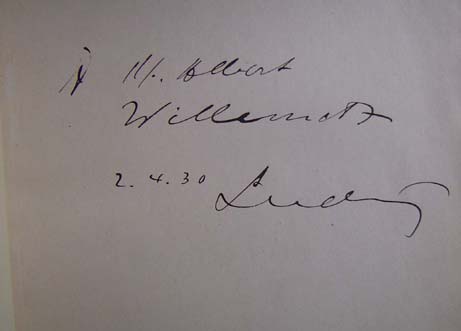 à M. Albert
Willemetz
2.4.30
Ludwig